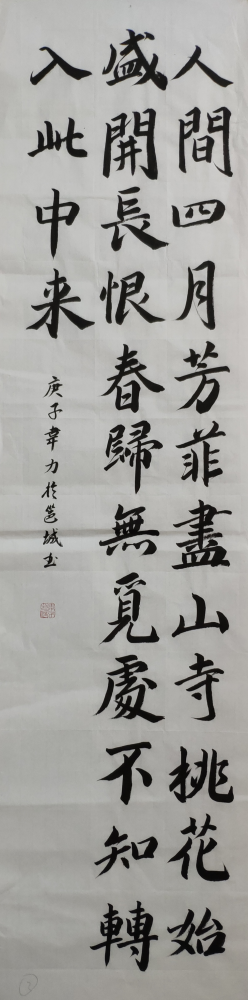 人間四月芳菲盡山寺桃花始
盛開長恨春歸無覓處不知轉
入此中来
庚子韋力於邕城书